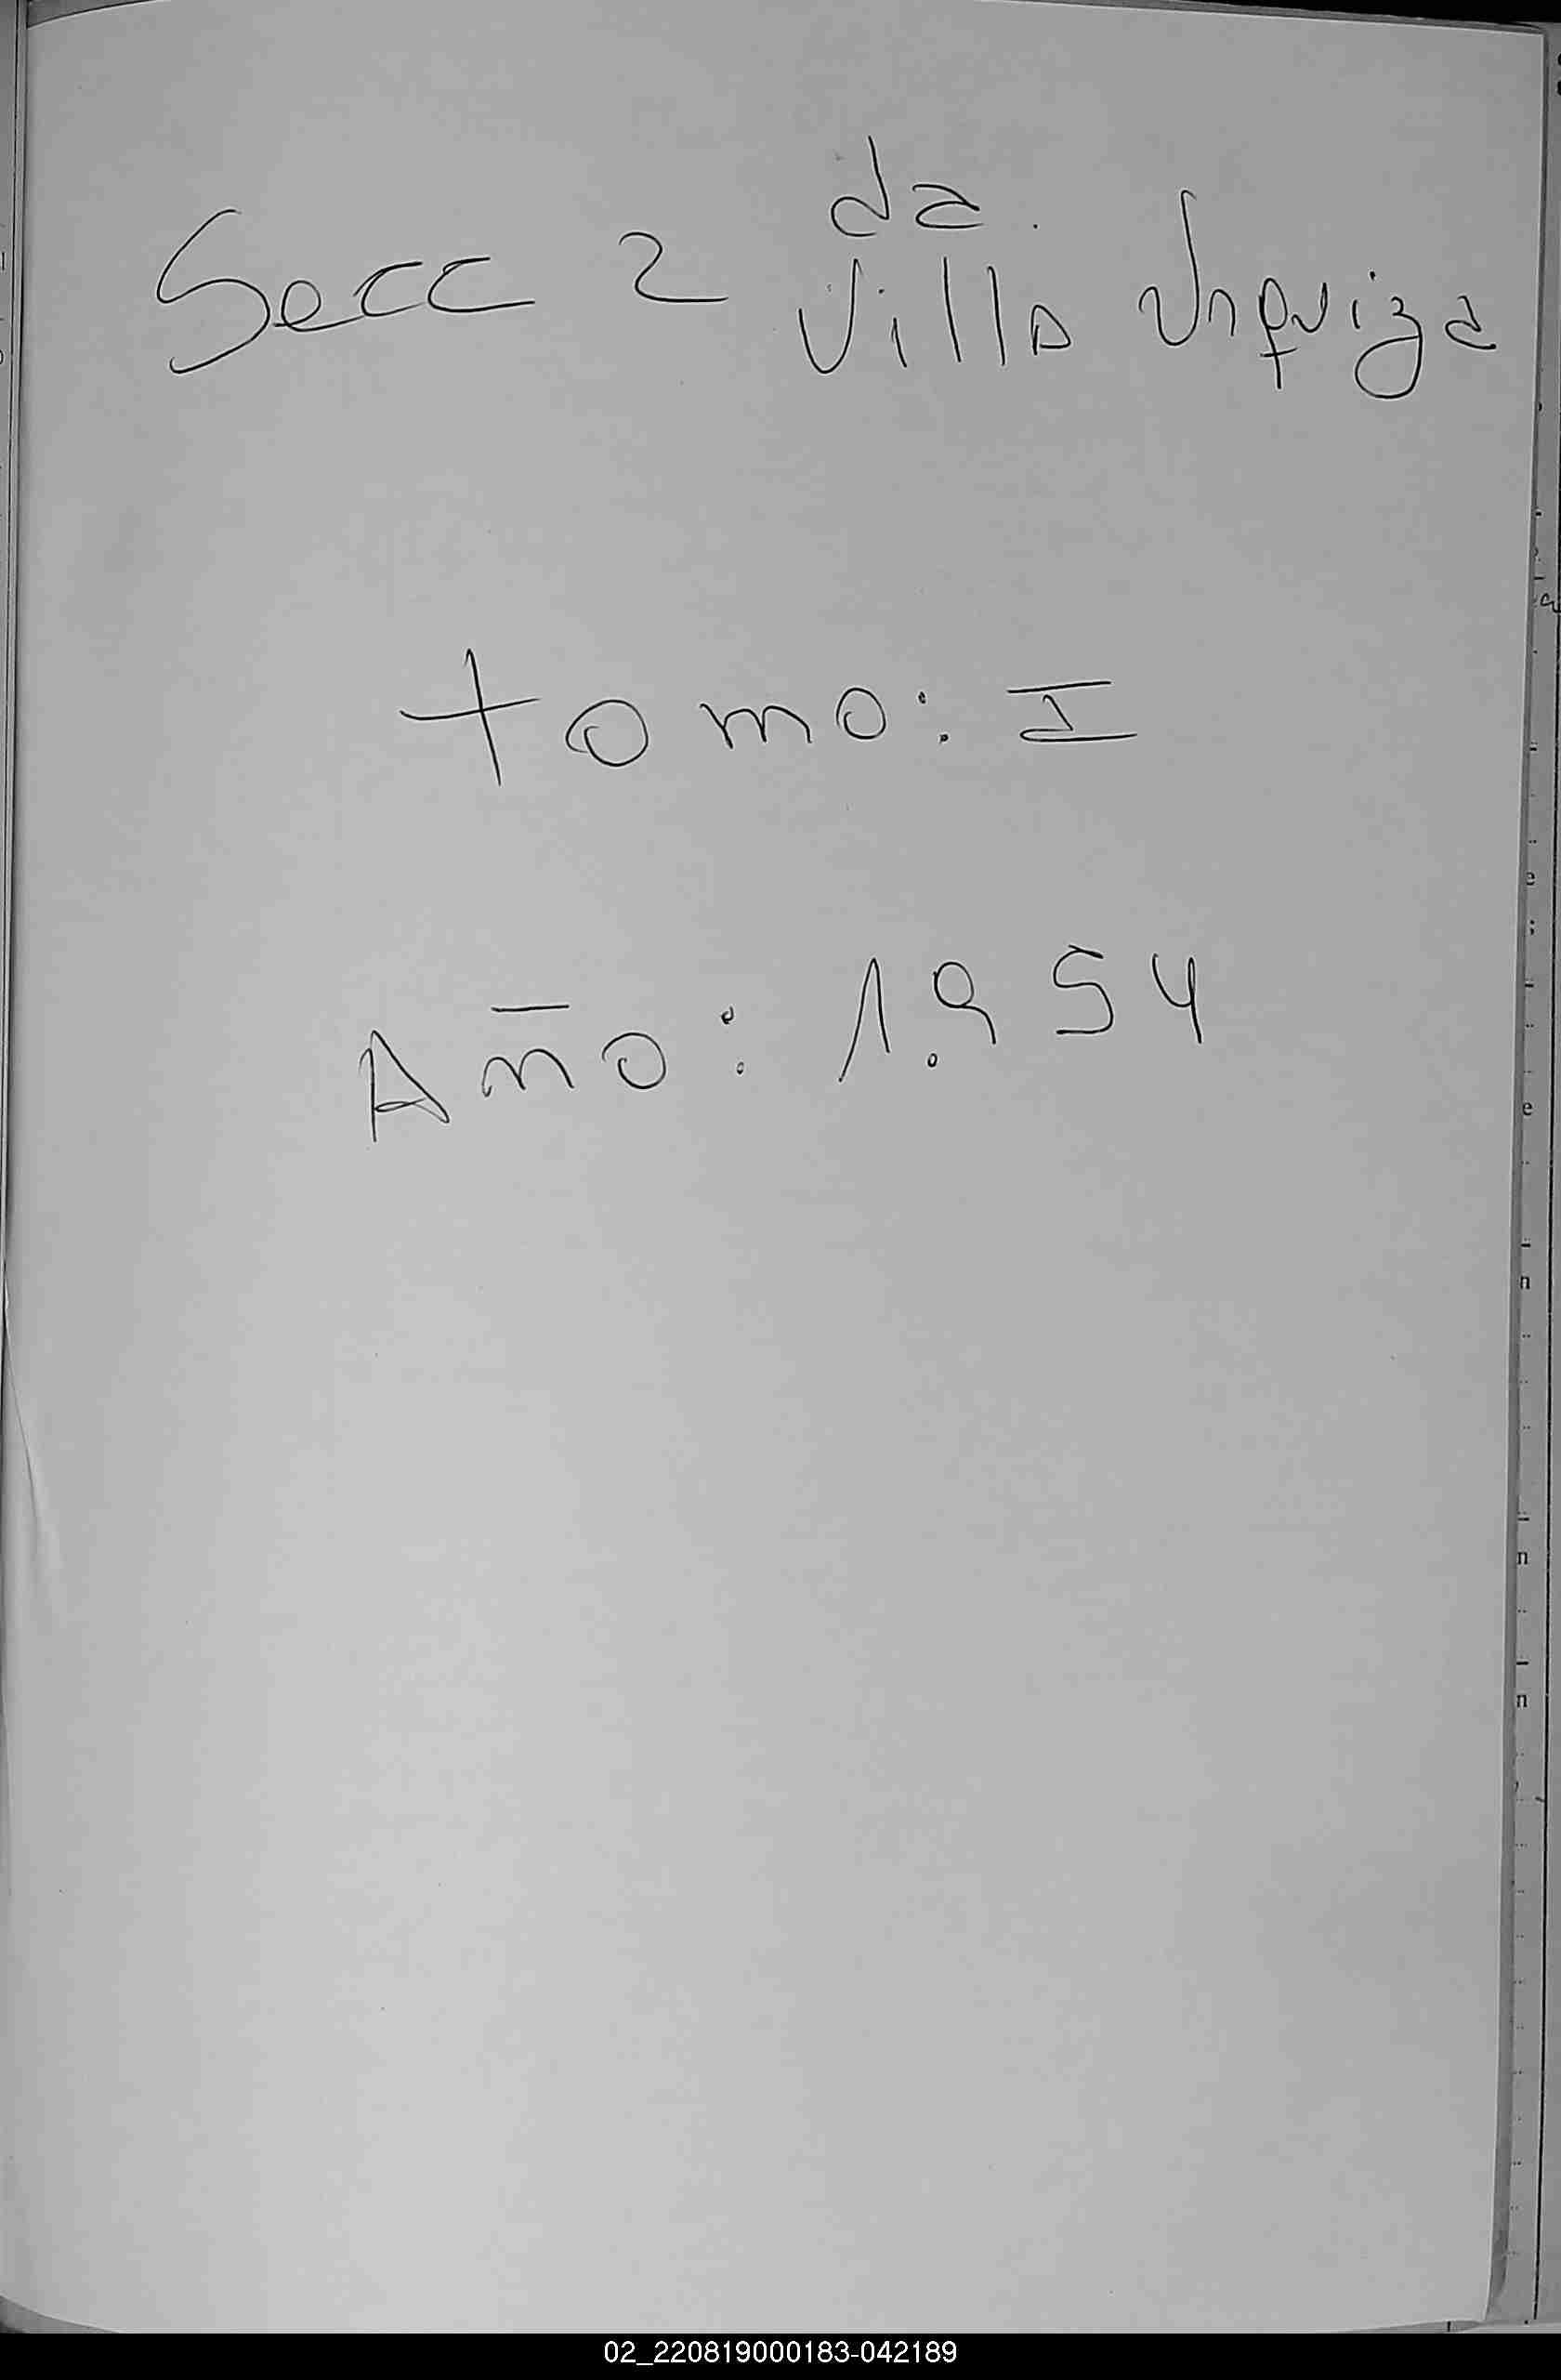 Secc 2 da. Villa Urquiza
tomo: I
Año: 1.954
02_220819000183-042189